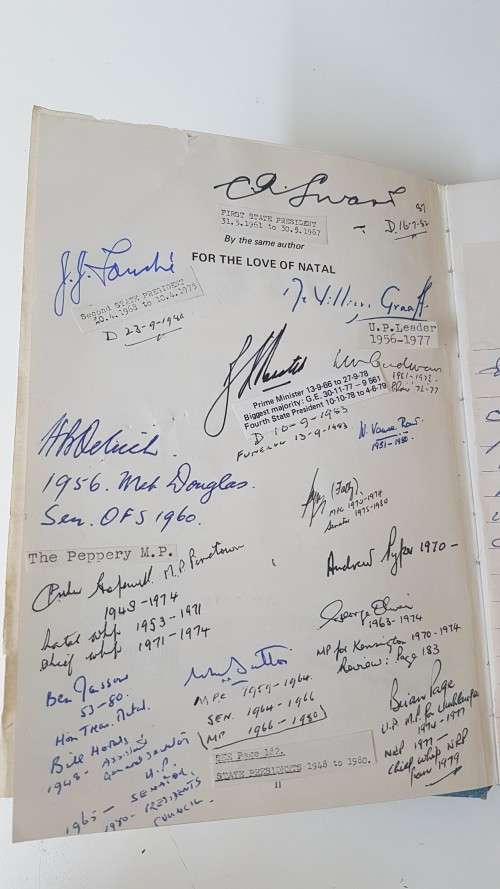 C. R. Swart
FIRST STATE PRESIDENT
31.5.1961 to 30.5.1967
87
D. 16-7-82
By the same author
FOR THE LOVE OF NATAL
J. J. Fouché
Second STATE PRESIDENT
10.4.1968 to 10.4.1975
D 23-9-1980
De Villiers Graaff
U.P.Leader
1956-1977
Prime Minister 13-9-66 to 27-9-78
Biggest majority: G.E. 30-11-77 - 9 561
Fourth State President 10-10-78 to 4-6-79
D 10-9-1983
FUNERAL 13-9-1983
W. Vause Raw
1951-1980.
1956. Douglas.
Sen. OFS 1960.
(Fatty).
MPC 1970-1974
Senator
1975-1980
The Peppery M.P.
M.P. Pinetown
1948-1974
Natal whip 1953-1971
Chief whip 1971-1974
Andrew Pyper 1970-
George Oliver
1963-1974
MP for Kensington 1970-1974
Review: Page 183
Ben
53-80.
Hon Treas. Natal.
Sutton
MPC 1959-1964.
SEN. 1964-1966
MP 1966-1980
Brian Page
U.P. M.P. for Umhlanga
1974-1977
NRP 1977-
Chief whip NRP
from 1979
Bill
1948- Assistant
General Secretary
U.P.
1965- SENATOR
1980- PRESIDENTS
COUNCIL.
SEE Page 182.
STATE PRESIDENTS 1948 to 1980.
11